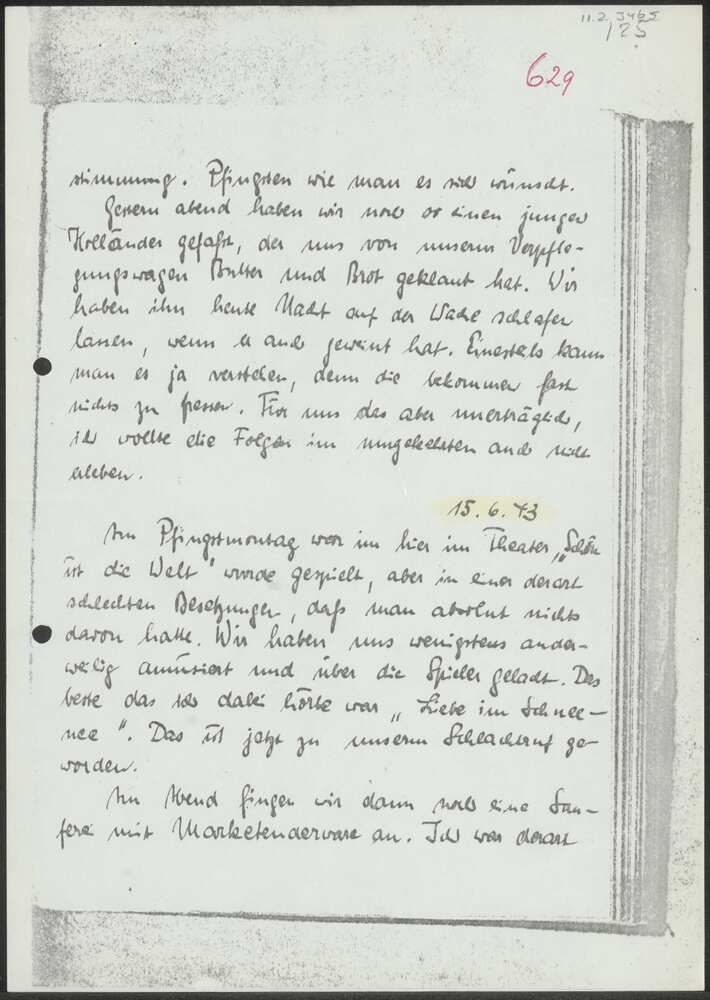 11.2 3465
125
629
stimmung. Pfingsten wie man es sich wünscht.
Gestern abend haben wir noch einen jungen
Holländer gefaßt, der uns von unserm Verpfle-
gungswagen Butter und Brot geklaut hat. Wir
haben ihn heute Nacht auf der Wache schlafen
lassen, wenn er auch geweint hat. Einesteils kann
man es ja verstehen, denn die bekommen fast
nichts zu fressen. Für uns das aber unerträglich,
ich wollte die Folgen im umgekehrten auch nicht
erleben.
15.6.43
Am Pfingstmontag war im hier im Theater, „Schön
ist die Welt" wurde gespielt, aber in einer derart
schlechten Besetzungen, daß man absolut nichts
davon hatte. Wir haben uns wenigstens ander-
weilig amüsiert und über die Spieler gelacht. Das
beste das ich dabei hörte war „Liebe im Schnee-
nee". Das ist jetzt zu unserm Schlachtruf ge-
worden.
Am Abend fingen wir dann noch eine Sau-
ferei mit Marketenderware an. Ich war derart